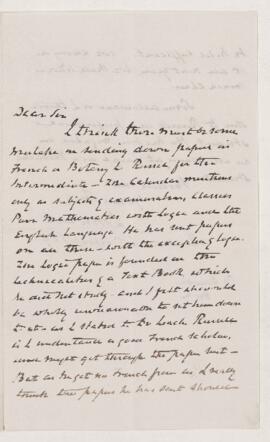 Dear Sir
I think there must be some
mistake in sending down papers in
French & Botany L. Russell for the
Intermediate – The Calendar mentions
only as subjects of examination, Classics
Pure Mathematics with Logic and the
English Language. He has sent papers
on all these – with the exception of Logic.
The Logic paper is founded on the
technicalities of a Text Book which
he did not study – and I felt it would
be wholly unreasonable to set him down
to it – as I stated to Dr Russell
is I understand a good French scholar,
and might get through the paper sent –
But as he gets no French from us I really
think the papers he has sent should